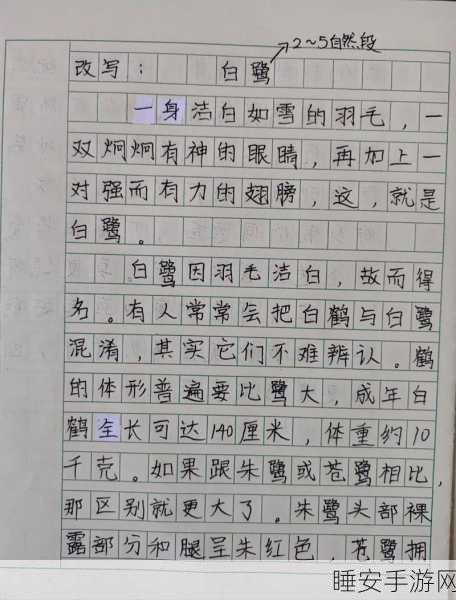 →2~5自然段
改写： 白鹭
一身洁白如雪的羽毛，一
双炯炯有神的眼睛，再加上一
对强而有力的翅膀，这，就是
白鹭。
白鹭因羽毛洁白，故而得
名。有人常常会把白鹤与白鹭
混淆，其实它们不难辨认。鹤
的体形普遍要比鹭大，成年白
鹤全长可达140厘米，体重约10
千克。如果跟朱鹭或苍鹭相比，
那区别就更大了。朱鹭头部裸
露部分和腿呈朱红色，苍鹭拥
睡安手游网